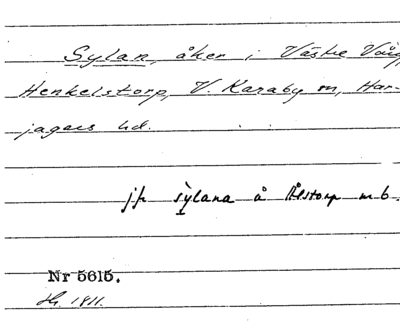 Sylan, åker i Västre Vång,
Henkelstorp, V. Karaby sn, Har-
jagers hd.
jfr sylana å Ålstorp
Nr 5615.
1811.